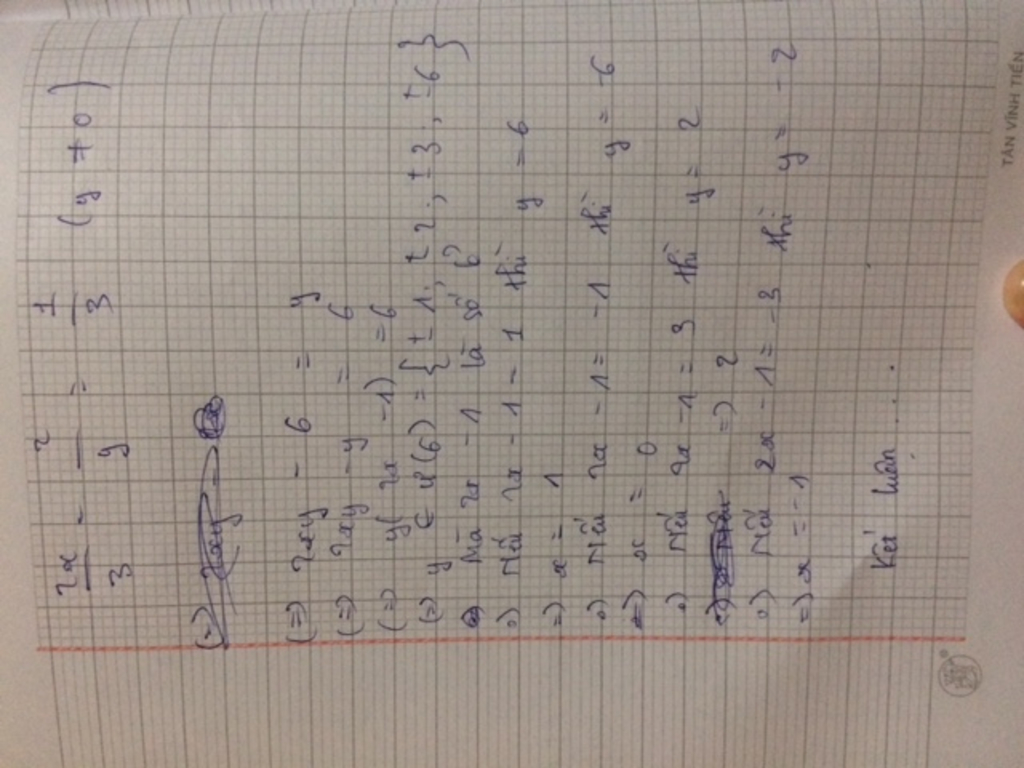 2x/3 - 2/y = 1/3 (y ≠ 0)
(=) 2xy - 6 = y
(=) 2xy - y = 6
(=) y(2x - 1) = 6
(=) y ∈ Ư(6) = {±1; ±2; ±3; ±6}
Mà 2x - 1 là số
o) Nếu 2x - 1 = 1 thì y = 6
=) x = 1
o) Nếu 2x - 1 = -1 thì y = -6
=) x = 0
o) Nếu 2x - 1 = 3 thì y = 2
=) 2
o) Nếu 2x - 1 = -3 thì y = -2
=) x = -1
Kết luận....
TÂN VĨNH TIẾN